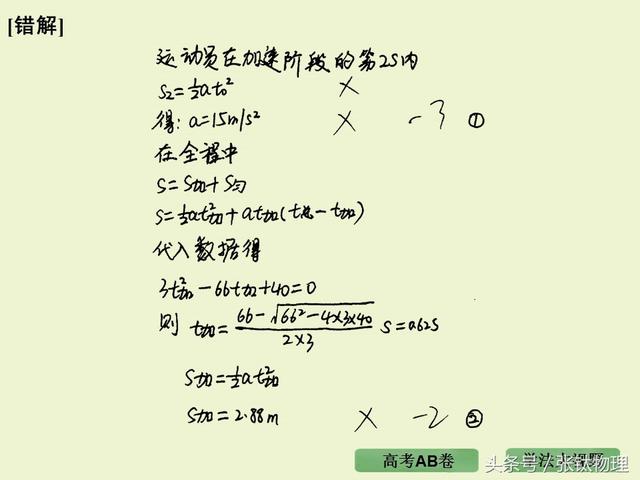 [错解]
运动员在加速阶段的第2s内
s₂=½at₀² ×
得: a=15m/s² × -3 ①
在全程中
s=s加+s匀
s=½at加²+at加(t总-t加)
代入数据得
3t加²-66t加+40=0
则 t加=(66-√(66²-4×3×40))/(2×3) s=0.62s
s加=½at加²
s加=2.88m × -2 ②
高考AB卷
头条号/张钛物理